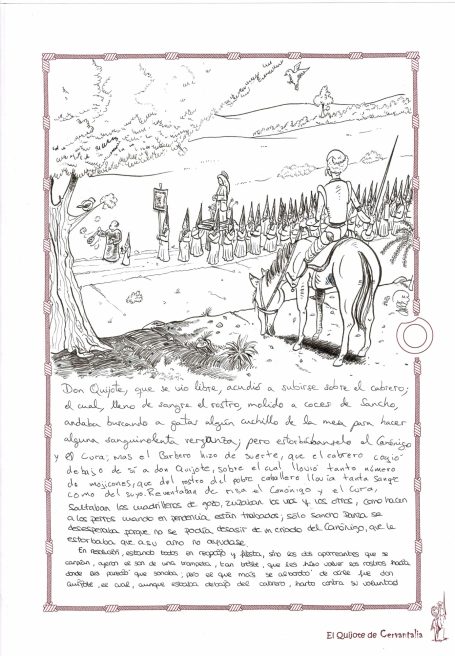 Don Quijote, que se vio libre, acudió a subirse sobre el cabrero;
el cual, lleno de sangre el rostro, molido a coces de Sancho,
andaba buscando a gatas algún cuchillo de la mesa para hacer
alguna sanguinolenta venganza; pero estorbábanselo el Canónigo
y el Cura; mas el Barbero hizo de suerte, que el cabrero cogió
debajo de sí a don Quijote, sobre el cual llovió tanto número
de mojicones, que del rostro del pobre caballero llovía tanta sangre
como del suyo. Reventaban de risa el Canónigo y el Cura,
saltaban los cuadrilleros de gozo, zuzaban los unos y los otros, como hacen
a los perros cuando en pendencia están trabados; sólo Sancho Panza se
desesperaba porque no se podía desasir de un criado del Canónigo, que le
estorbaba que a su amo no ayudase.
En resolución, estando todos en regocijo y fiesta, sino los dos aporreantes que se
carpían, oyeron el son de una trompeta, tan triste, que les hizo volver los rostros hacia
donde les pareció que sonaba; pero el que más se alborotó de oírle fue don
Quijote, el cual, aunque estaba debajo del cabrero, harto contra su voluntad
El Quijote de Cervantalia